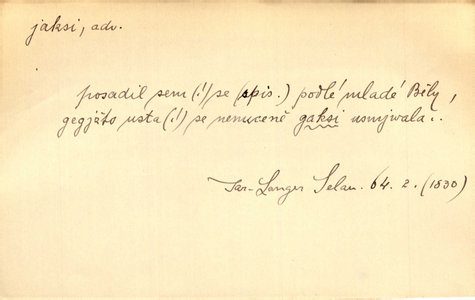 jaksi, adv.
posadil sem (!) se (spis.) podlé mladé Běly,
gegjžto usta (!) se nenuceně gaksi usmjwala..
Jar-Langer Selan. 64. 2. (1830)